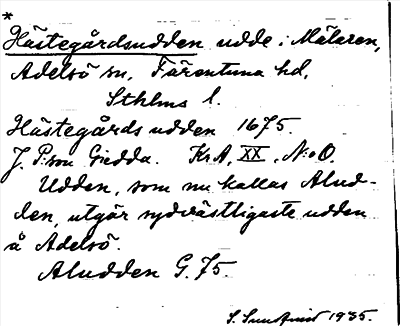 *
Hästegårdsudden udde i Mälaren,
Adelsö sn, Färentuna hd,
Sthlms l.
Hästegårds udden 1675.
J. P:son Giedda. KrA, XX, N:o O.
Udden, som nu kallas Alud-
den, utgör sydvästligaste udden
å Adelsö.
Aludden G. 75.
S. Sundqvist 1935.